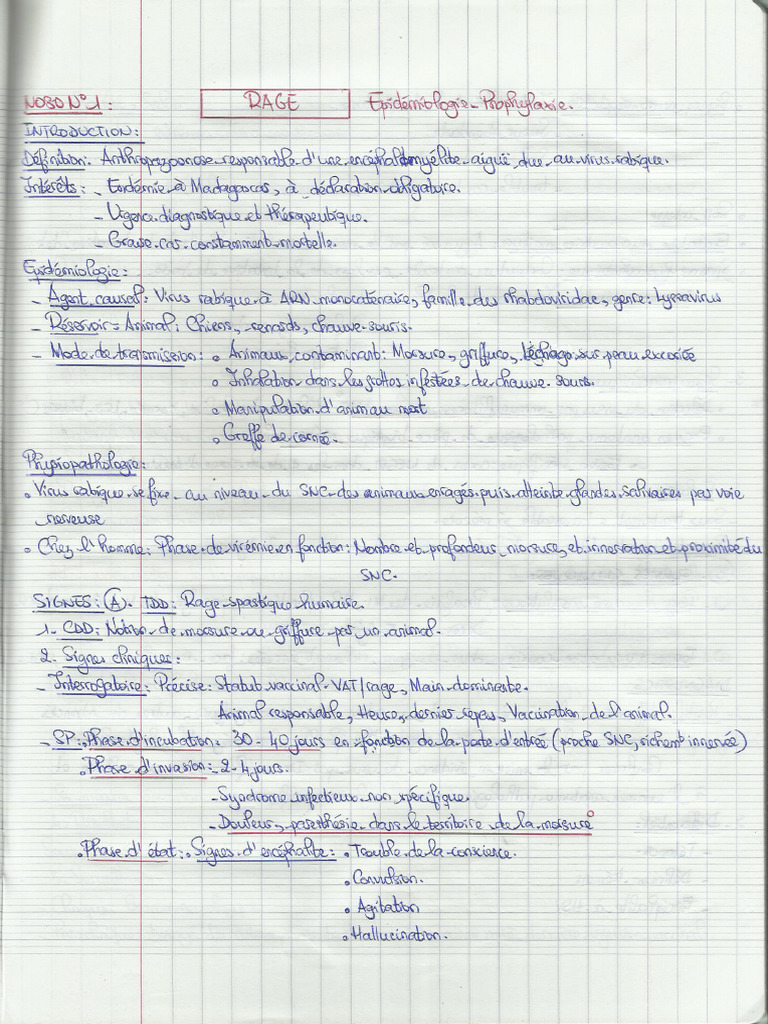 NOSO N°1 : RAGE Epidémiologie - Prophylaxie.
INTRODUCTION :
Définition : Anthropozoonose responsable d'une encéphalomyélite aiguë due au virus rabique.
Intérêts : - Endémie à Madagascar, à déclaration obligatoire.
- Urgence diagnostique et thérapeutique.
- Grave car constamment mortelle.
Epidémiologie :
- Agent causal : Virus rabique à ARN monocaténaire, famille des rhabdoviridae, genre : Lyssavirus
- Réservoir = Animal : Chiens, renards, chauve-souris.
- Mode de transmission : ° Animaux contaminant : Morsure, griffure, léchage sur peau excoriée
° Inhalation dans les grottes infestées de chauve souris.
° Manipulation d'animau mort
° Greffe de cornée.
Physiopathologie :
° Virus rabique se fixe au niveau du SNC des animaux enragés puis atteinte glandes salivaires par voie
nerveuse
° Chez l'homme : Phase de virémie en fonction : Nombre et profondeur morsure, et innervation et proximité du
SNC.
SIGNES : (A). TDD : Rage spastique humaine.
1- CDD : Notion de morsure ou griffure par un animal.
2. Signes cliniques :
- Interrogatoire : Précise : Statut vaccinal VAT/rage, Main dominante.
Animal responsable, Heure, dernier repas, Vaccination de l'animal.
- SP : Phase d'incubation : 30 - 40 jours en fonction de la porte d'entrée (proche SNC, richemt innervée)
Phase d'invasion : 2-4 jours.
- Syndrome infectieux non spécifique.
- Douleur, paresthésie dans le territoire de la morsure
• Phase d'état : ° Signes d'encéphalite : • Trouble de la conscience.
• Convulsion.
• Agitation
• Hallucination.